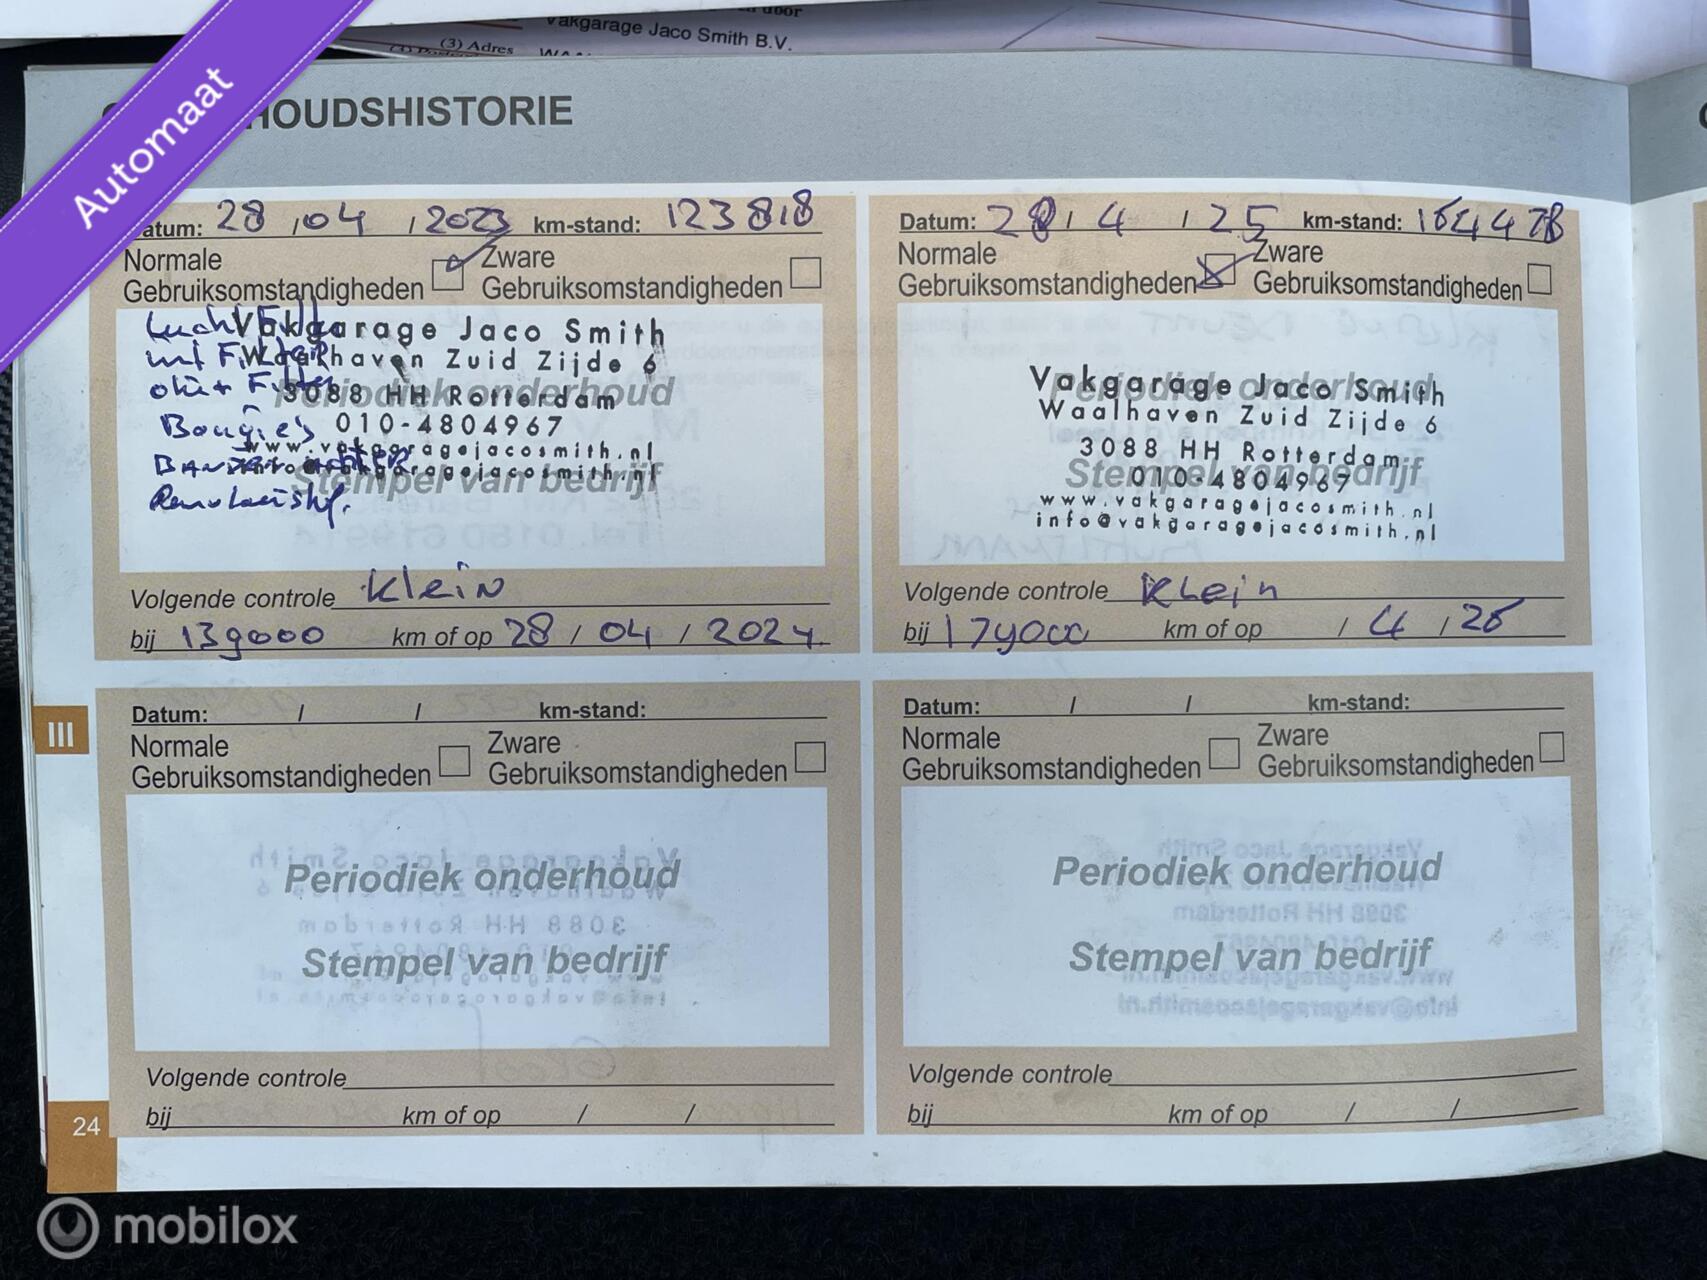 door
Vakgarage Jaco Smith B.V.
(3) Adres
Automaat
HOUDSHISTORIE
atum: 28 / 04 / 2023 km-stand: 123818
Normale Gebruiksomstandigheden
Zware Gebruiksomstandigheden
Lucht Filter
Vakgarage Jaco Smith
int Filter
Waalhaven Zuid Zijde 6
olie + Filter
3088 HH Rotterdam
Periodiek onderhoud
Bougie's
010-4804967
www.vakgaragejacosmith.nl
Banden achter
info@vakgaragejacosmith.nl
Stempel van bedrijf
Volgende controle Klein
bij 139000 km of op 28 / 04 / 2024
Datum: 28 / 4 / 25 km-stand: 164478
Normale Gebruiksomstandigheden
Zware Gebruiksomstandigheden
Vakgarage Jaco Smith
Periodiek onderhoud
Waalhaven Zuid Zijde 6
3088 HH Rotterdam
Stempel van bedrijf
010-4804967
www.vakgaragejacosmith.nl
info@vakgaragejacosmith.nl
Volgende controle Klein
bij 179000 km of op / 4 / 26
III
Datum: / / km-stand:
Normale Gebruiksomstandigheden
Zware Gebruiksomstandigheden
Periodiek onderhoud
Stempel van bedrijf
Volgende controle
bij km of op / /
Datum: / / km-stand:
Normale Gebruiksomstandigheden
Zware Gebruiksomstandigheden
Periodiek onderhoud
Stempel van bedrijf
Volgende controle
bij km of op / /
24
mobilox